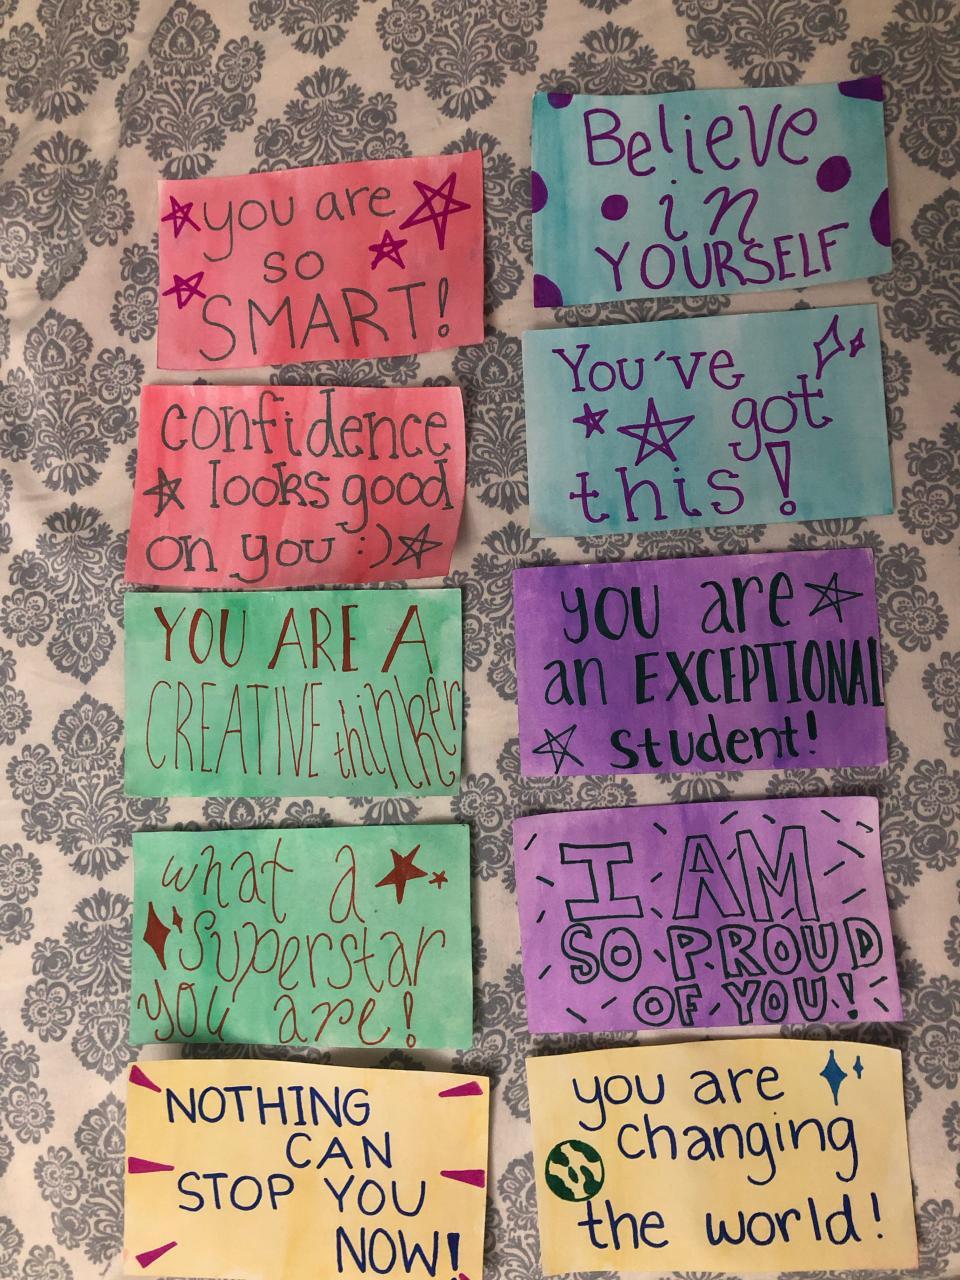 you are
so
SMART!
confidence
looks good
on you :)
YOU ARE A
CREATIVE thinker
what a
superstar
you are!
NOTHING
CAN
STOP YOU
NOW!
Believe
in
YOURSELF
You've
got
this!
you are
an EXCEPTIONAL
student!
I AM
SO PROUD
OF YOU!
you are
changing
the world!